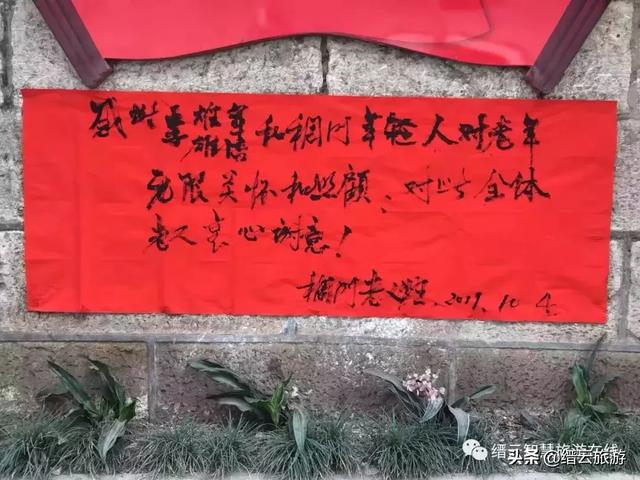 感谢李雄和稠门年轻人对老年
无限关怀和照顾、对此全体
老人衷心谢意!
稠门老 2019.10.4
缙云智慧旅游在线
头条 @缙云旅游